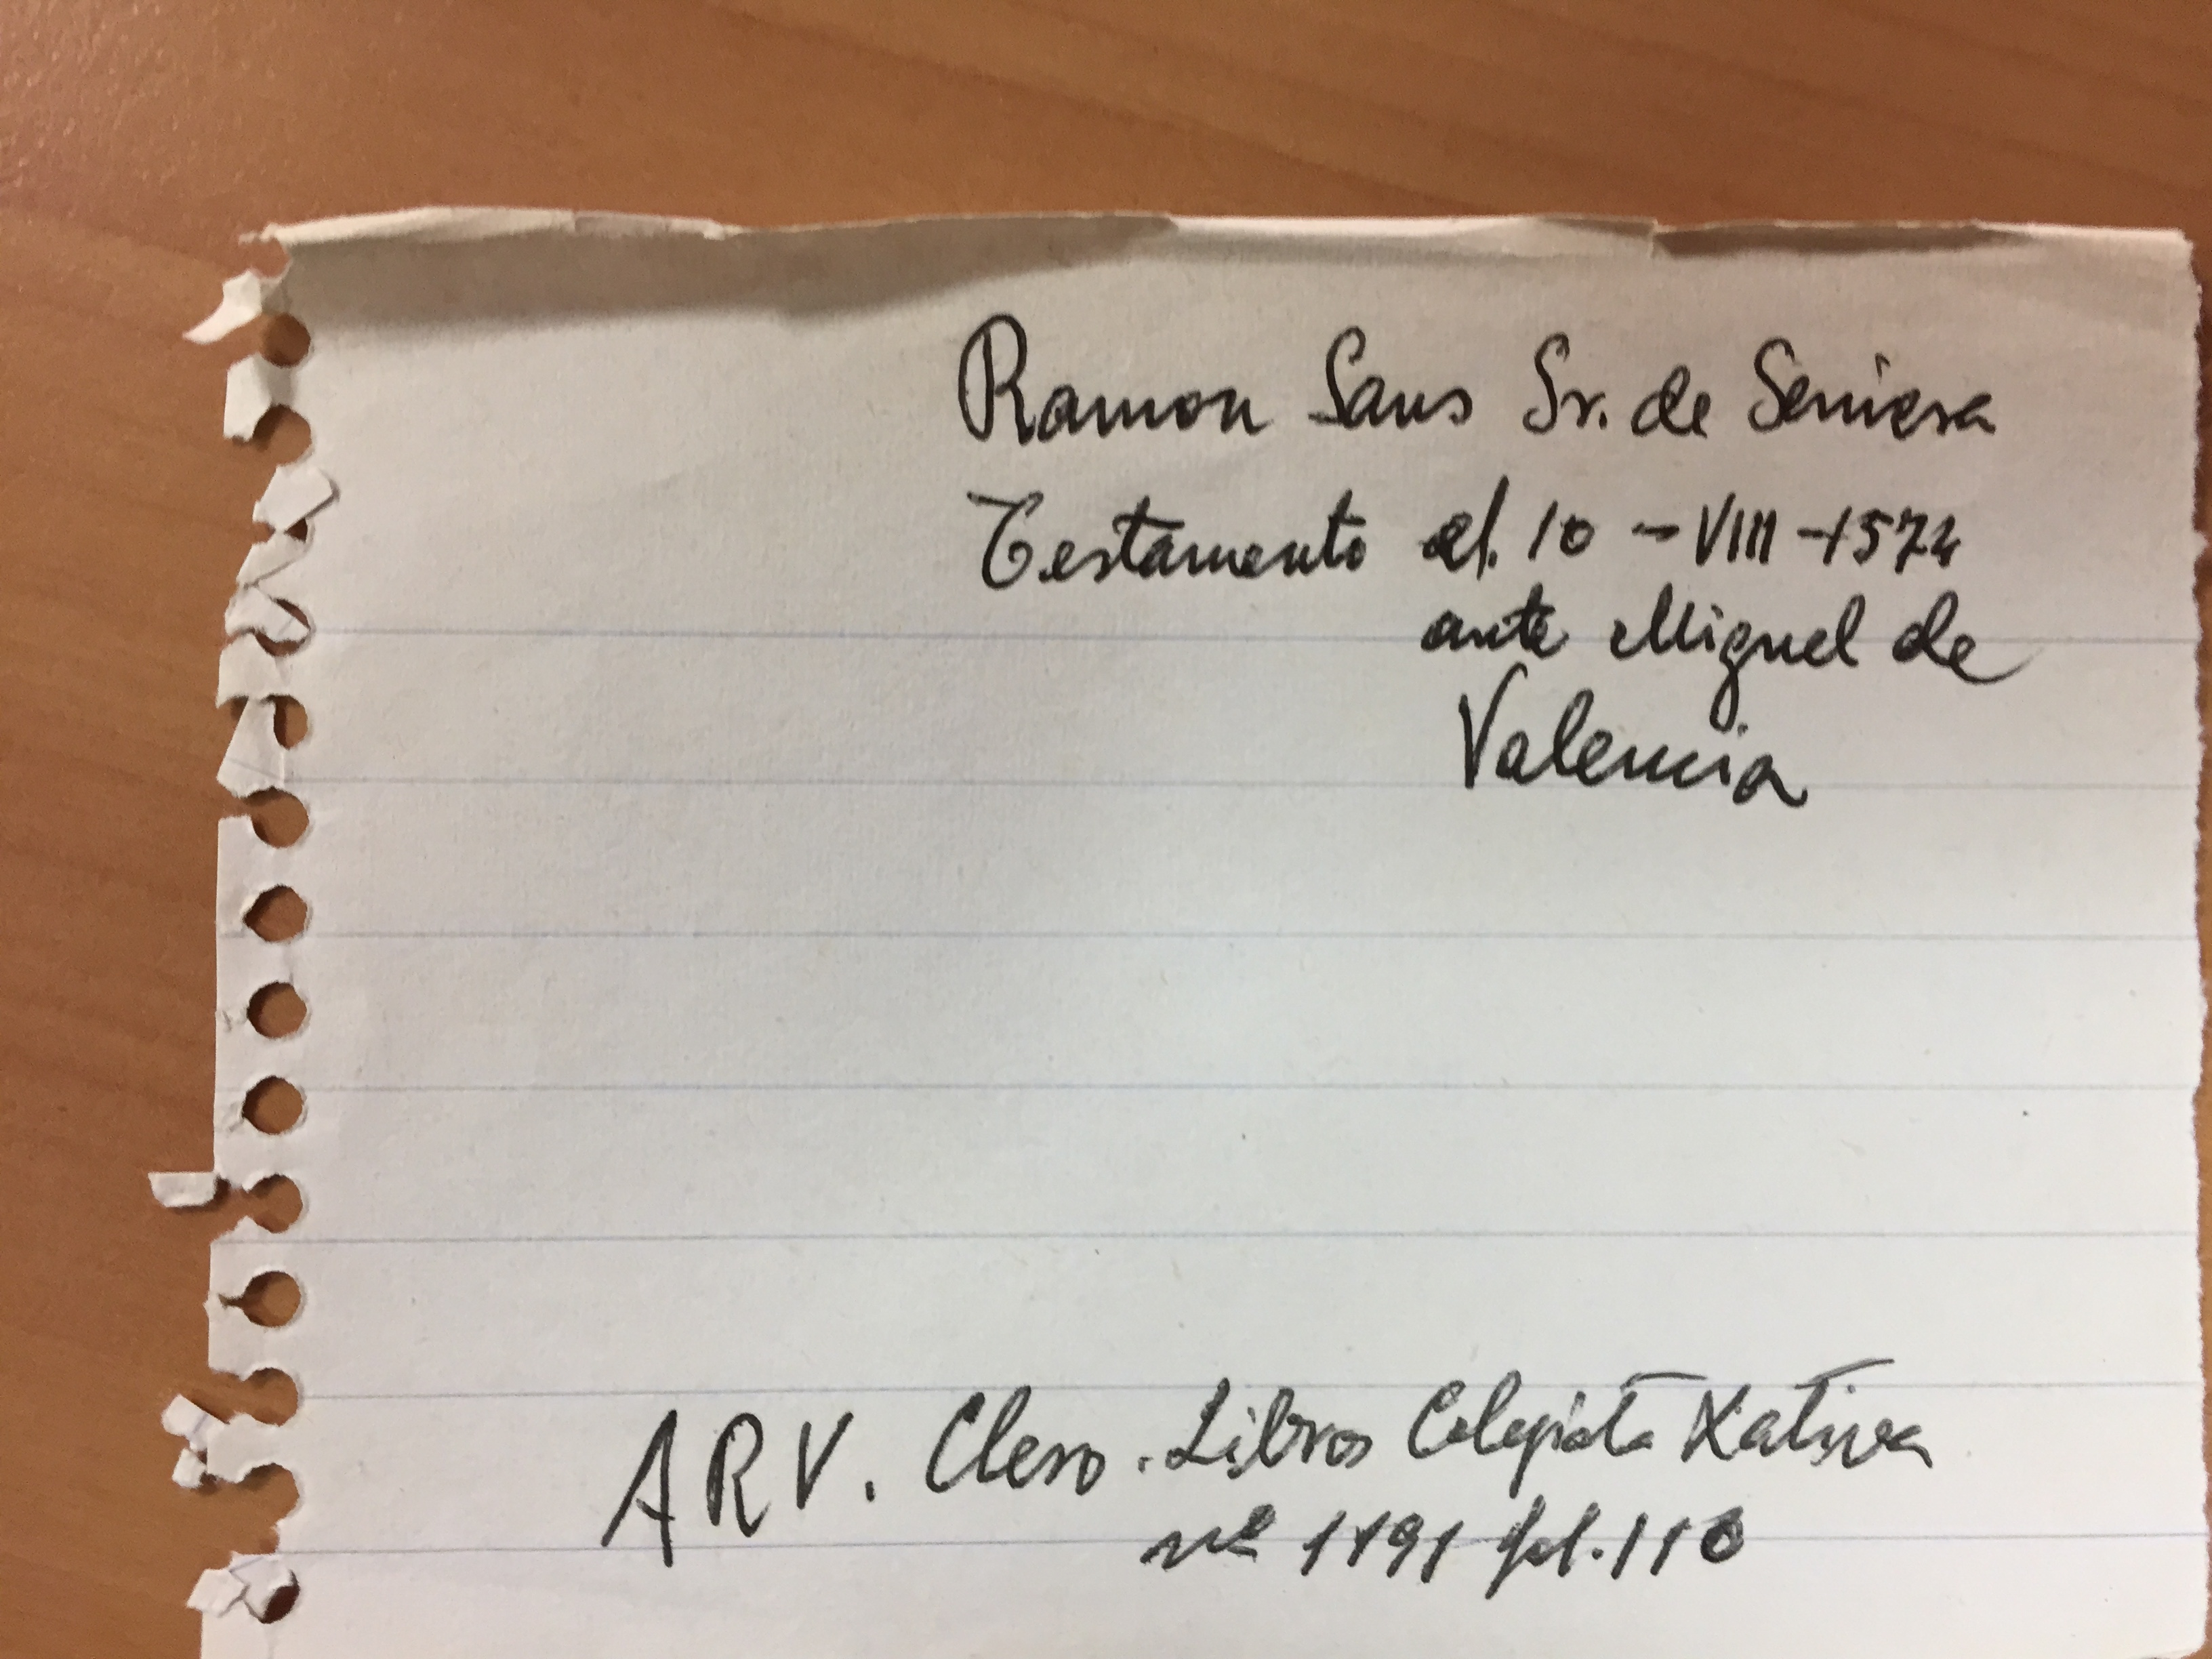 Ramon Sans Sr. de Seniera
Testamento el 10 - VIII - 1574
ante Miguel de
Valencia
ARV. Clero. Libros Colegiata Xativa
nº 1191 fol. 116